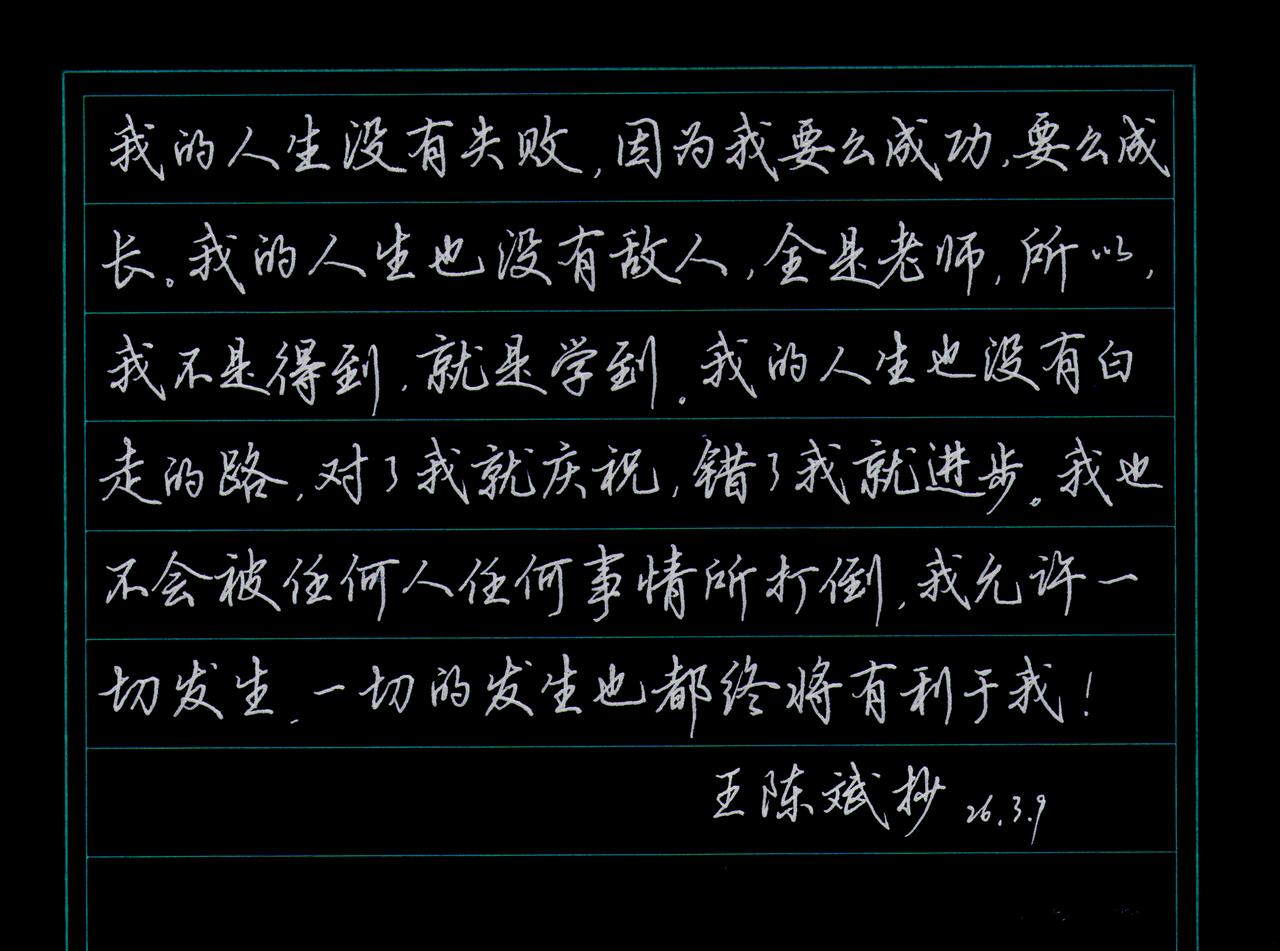 我的人生没有失败,因为我要么成功,要么成
长。我的人生也没有敌人,全是老师,所以,
我不是得到,就是学到。我的人生也没有白
走的路,对了我就庆祝,错了我就进步。我也
不会被任何人任何事情所打倒,我允许一
切发生,一切的发生也都终将有利于我!
王陈斌抄 26.3.9